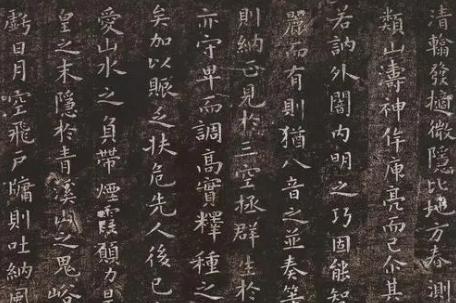 清輪發擿微隱比地方春測
類山壽神侔庾亮而已尒其
若訥外闇内明之巧固能智
嚴而有則猶八音之並奏等
則納正見於三空極群生於
亦守卑而調高實釋種之
矣加以賑乏扶危先人後已
愛山水之負帶煙霞願力
皇之末隱於青溪山之鬼峪
虧日月空飛戶牖則吐納風